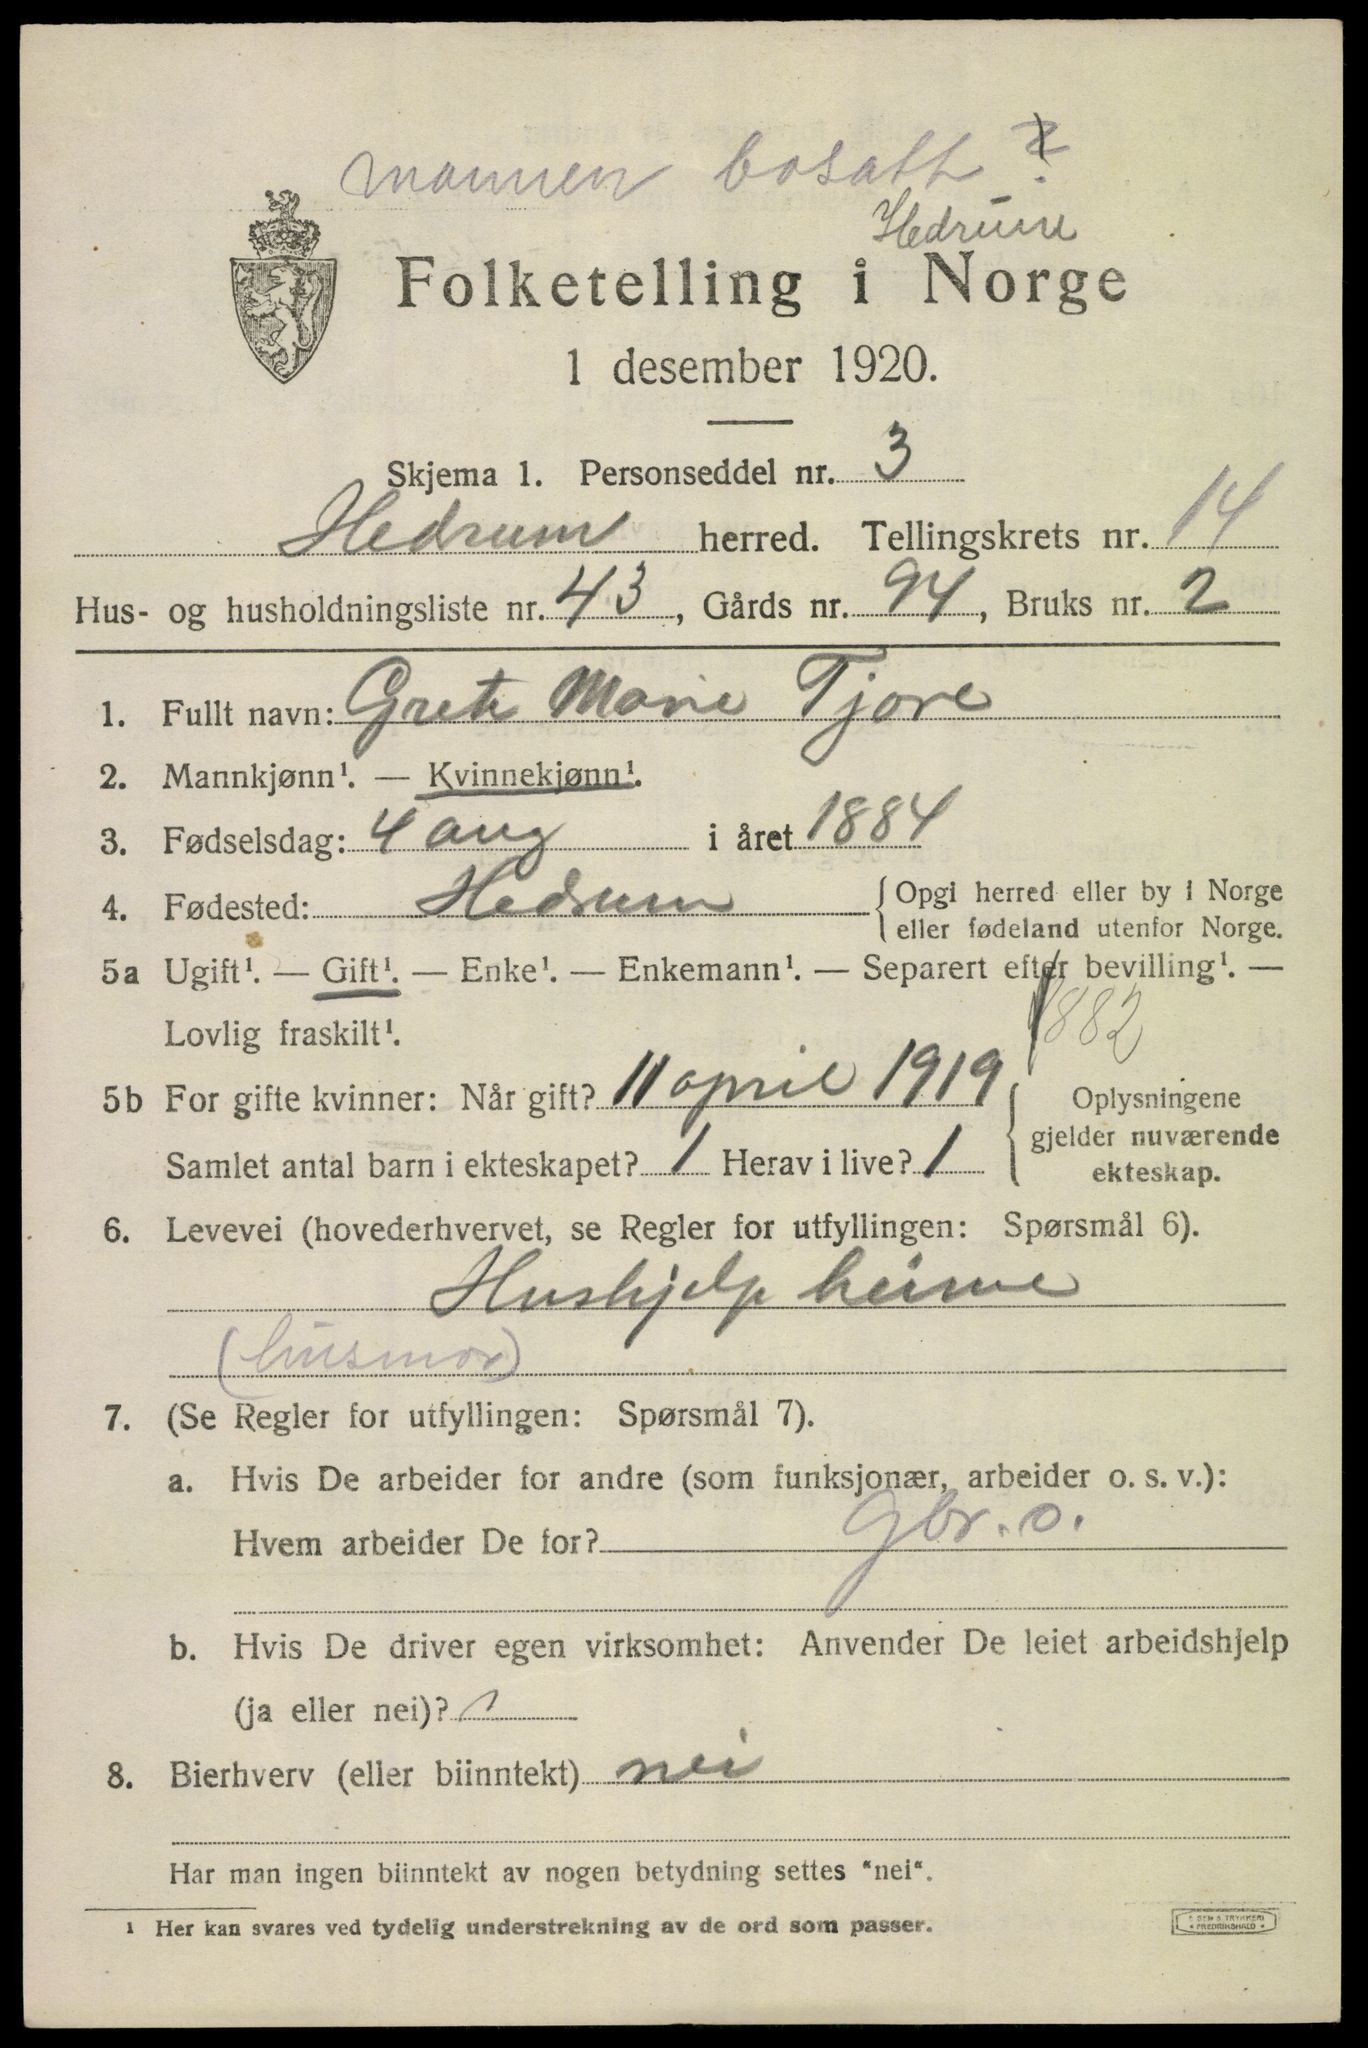 mannen bosatt ?
Hedrum
Folketelling i Norge
1 desember 1920.
Skjema 1. Personseddel nr. 3
Hedrum herred. Tellingskrets nr. 14
Hus- og husholdningsliste nr. 43, Gårds nr. 94, Bruks nr. 2
1. Fullt navn: Grete Marie Tjøre
2. Mannkjønn¹. — Kvinnekjønn¹.
3. Fødselsdag: 4 aug i året 1884
4. Fødested: Hedrum {Opgi herred eller by i Norge
eller fødeland utenfor Norge.
5a Ugift¹. — Gift¹. — Enke¹. — Enkemann¹. — Separert efter bevilling¹. —
Lovlig fraskilt¹.
1882
5b For gifte kvinner: Når gift? 11 april 1919 { Oplysningene
gjelder nuværende
Samlet antal barn i ekteskapet? 1 Herav i live? 1
ekteskap.
6. Levevei (hovederhvervet, se Regler for utfyllingen: Spørsmål 6).
Hushjelp heime
(husmor)
7. (Se Regler for utfyllingen: Spørsmål 7).
a. Hvis De arbeider for andre (som funksjonær, arbeider o. s. v.):
Hvem arbeider De for? Gbr. o.
b. Hvis De driver egen virksomhet: Anvender De leiet arbeidshjelp
(ja eller nei)?
8. Bierhverv (eller biinntekt) nei
Har man ingen biinntekt av nogen betydning settes "nei".
¹ Her kan svares ved tydelig understrekning av de ord som passer.
E SEM'S TRYKKERI
* FREDRIKSHALD *